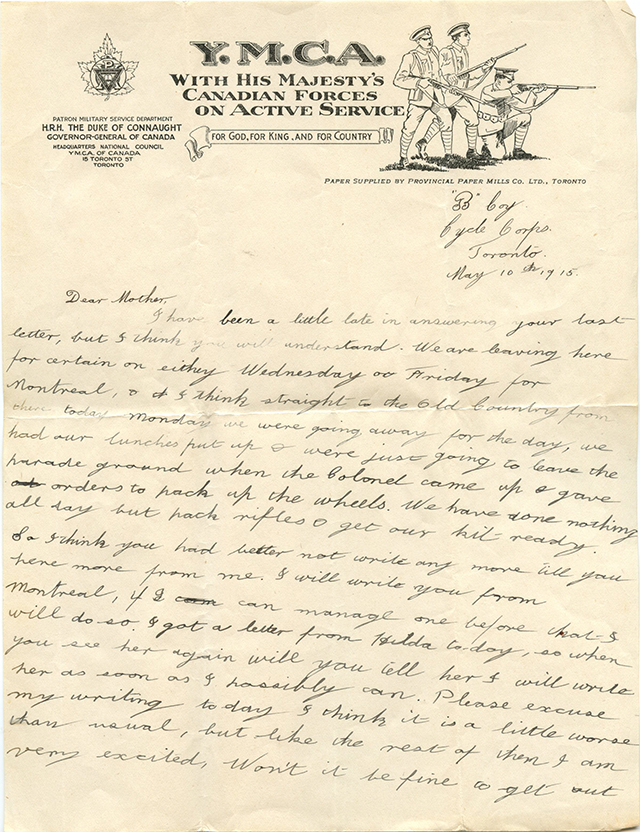 Y.M.C.A.
WITH HIS MAJESTY'S
CANADIAN FORCES
ON ACTIVE SERVICE
FOR GOD, FOR KING, AND FOR COUNTRY
PATRON MILITARY SERVICE DEPARTMENT
H.R.H. THE DUKE OF CONNAUGHT
GOVERNOR-GENERAL OF CANADA
HEADQUARTERS NATIONAL COUNCIL
Y.M.C.A. OF CANADA
15 TORONTO ST
TORONTO
PAPER SUPPLIED BY PROVINCIAL PAPER MILLS CO. LTD., TORONTO
"B" Coy.
Cycle Corps.
Toronto.
May 10th, 1915.
Dear Mother,
I have been a little late in answering your last
letter, but I think you will understand. We are leaving here
for certain on either Wednesday or Friday for
Montreal, & I think straight to the Old Country from
there. today Monday we were going away for the day, we
had our lunches put up & were just going to leave the
parade ground when the Colonel came up & gave
orders to pack up the wheels. We have done nothing
all day but pack rifles & get our kit ready.
So I think you had better not write any more till you
here more from me. I will write you from
Montreal, if I can manage one before that I
will do so. I got a letter from Hilda today, so when
you see her again will you tell her I will write
her as soon as I possibly can. Please excuse
my writing today I think it is a little worse
than usual, but like the rest of them I am
very excited, Won't it be fine to get out